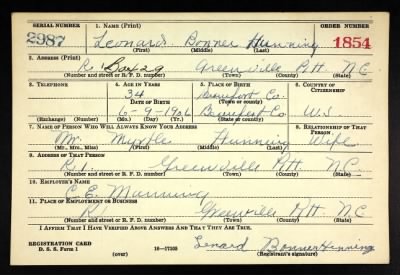 SERIAL NUMBER 1. NAME (Print) ORDER NUMBER
2987 Leonard Bonner Hunning 1854
(First) (Middle) (Last)
2. ADDRESS (Print)
R1 Box 29 Greenville Pitt N.C.
(Number and street or R. F. D. number) (Town) (County) (State)
3. TELEPHONE 4. AGE IN YEARS 5. PLACE OF BIRTH 6. COUNTRY OF CITIZENSHIP
34 Beaufort Co.
DATE OF BIRTH (Town or county)
6-9-1906 Beaufort Co. U.S.
(Exchange) (Number) (Mo.) (Day) (Yr.) (State or country)
7. NAME OF PERSON WHO WILL ALWAYS KNOW YOUR ADDRESS 8. RELATIONSHIP OF THAT PERSON
Myrtle Hunning Wife
(Mr., Mrs., Miss) (First) (Middle) (Last)
9. ADDRESS OF THAT PERSON
R1. Greenville Pitt N.C.
(Number and street or R. F. D. number) (Town) (County) (State)
10. EMPLOYER'S NAME
C. E. Manning
11. PLACE OF EMPLOYMENT OR BUSINESS
R1 Greenville Pitt N.C.
(Number and street or R. F. D. number) (Town) (County) (State)
I AFFIRM THAT I HAVE VERIFIED ABOVE ANSWERS AND THAT THEY ARE TRUE.
REGISTRATION CARD
D. S. S. Form 1 16-17105 Lenard Bonner Hinning
(over) (Registrant's signature)